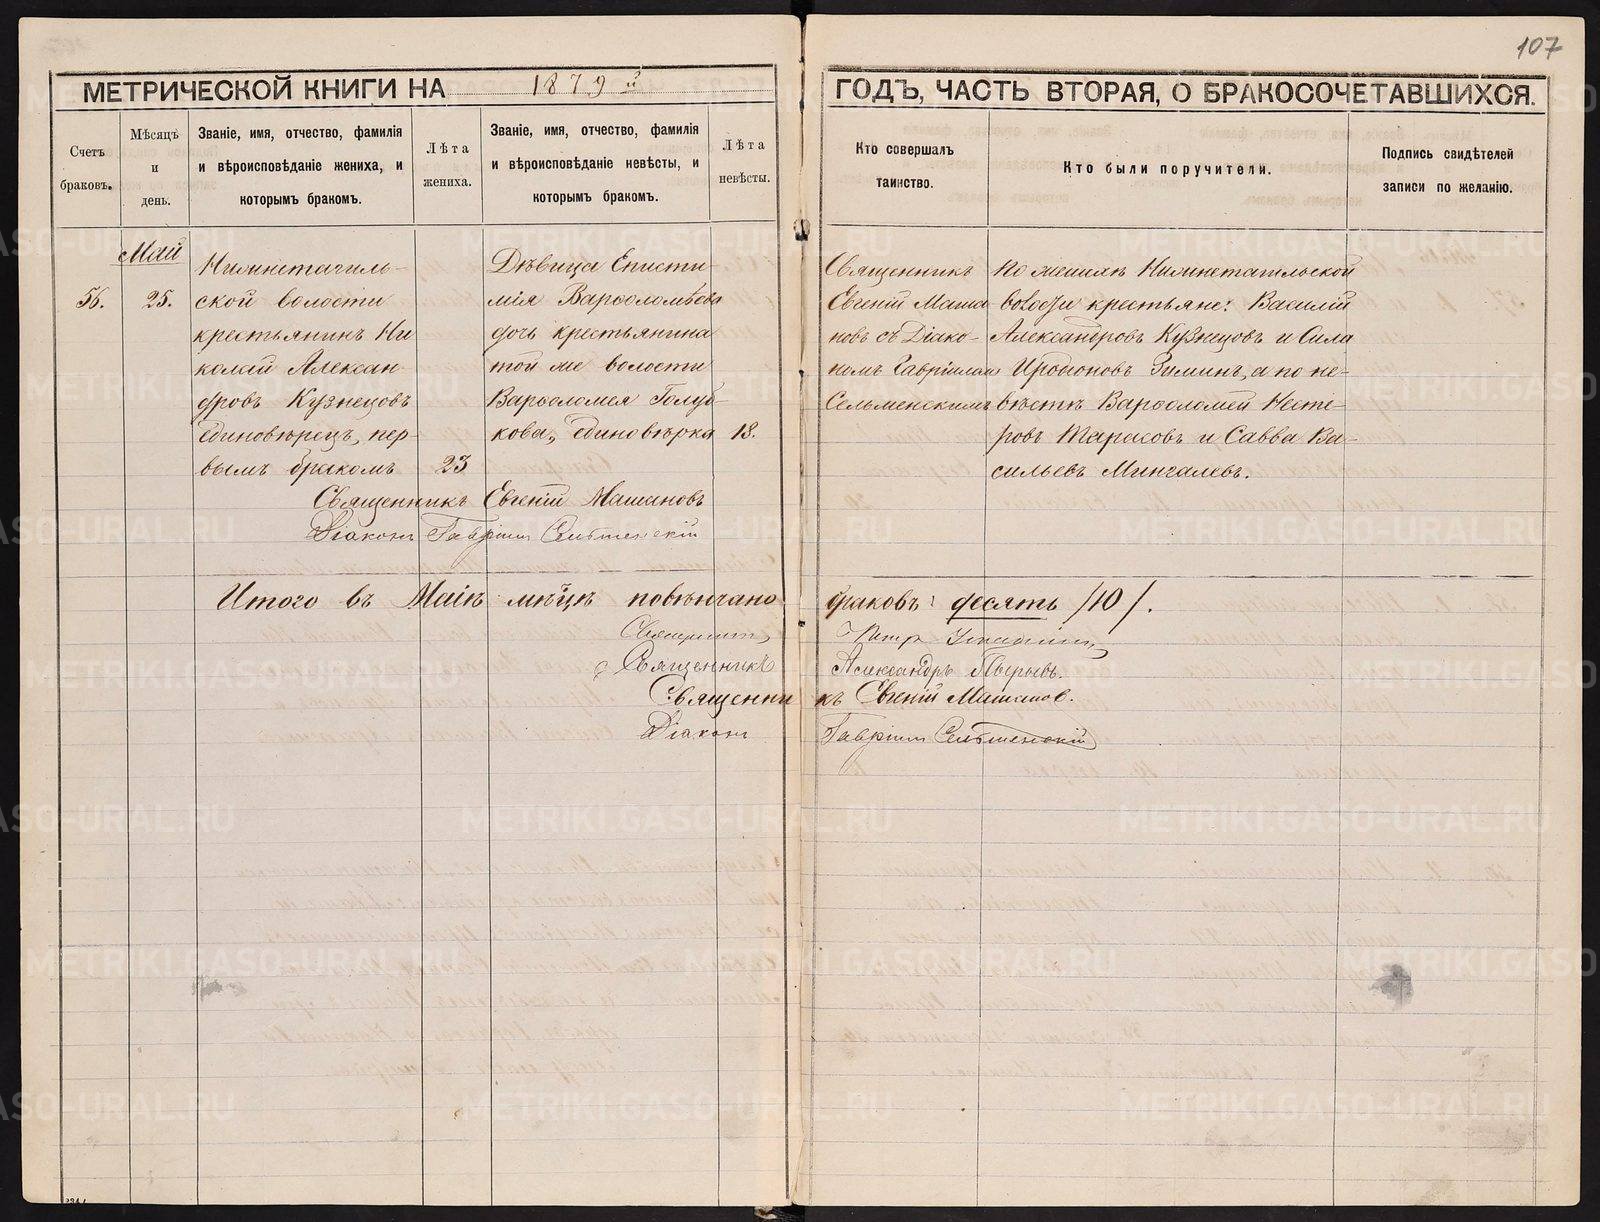 107
МЕТРИЧЕСКОЙ КНИГИ НА 1879 й ГОДЪ, ЧАСТЬ ВТОРАЯ, О БРАКОСОЧЕТАВШИХСЯ.
Счетъ
браковъ.
Мѣсяцъ
и
день.
Званіе, имя, отчество, фамилія
и вѣроисповѣданіе жениха, и
которымъ бракомъ.
Лѣта
жениха.
Званіе, имя, отчество, фамилія
и вѣроисповѣданіе невѣсты, и
которымъ бракомъ.
Лѣта
невѣсты.
Кто совершалъ
таинство.
Кто были поручители.
Подпись свидѣтелей
записи по желанію.
Май
56.
25.
Нижнетагиль-
ской волости
крестьянинъ Ни
колай Алексан-
дровъ Кузнецовъ
единовѣрецъ, пер-
вымъ бракомъ
23
Дѣвица Еписти-
мія Варѳоломѣева
дочь крестьянина
той же волости
Варѳоломея Голуб
кова, единовѣрка
18.
Священникъ
Евгеній Маша
новъ съ Діако-
номъ Гавріиломъ
Сельменскимъ
По женихѣ Нижнетагильской
волости крестьяне: Василій
Александровъ Кузнецовъ и Сила
Иродіоновъ Зиминъ, а по не-
вѣстѣ Варѳоломей Несте-
ровъ Тарасовъ и Савва Ва-
сильевъ Мингалевъ.
Священникъ Евгеній Машановъ
Діаконъ Гавріилъ Сельменскій
Итого въ Маѣ мѣцѣ повѣнчано браковъ: десять /10/.
Священникъ Петръ
Священникъ Александръ
Священникъ Евгеній Машановъ.
Діаконъ Гавріилъ Сельменскій
METRIKI.GASO-URAL.RU